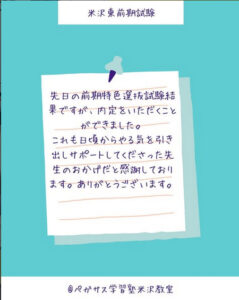 米沢東前期試験
先日の前期特色選抜試験結
果ですが、内定をいただくこと
ができました。
これも日頃からやる気を引き
出しサポートしてくださった先
生のおかげだと感謝しており
ます。ありがとうございます。
@ペガサス学習塾米沢教室